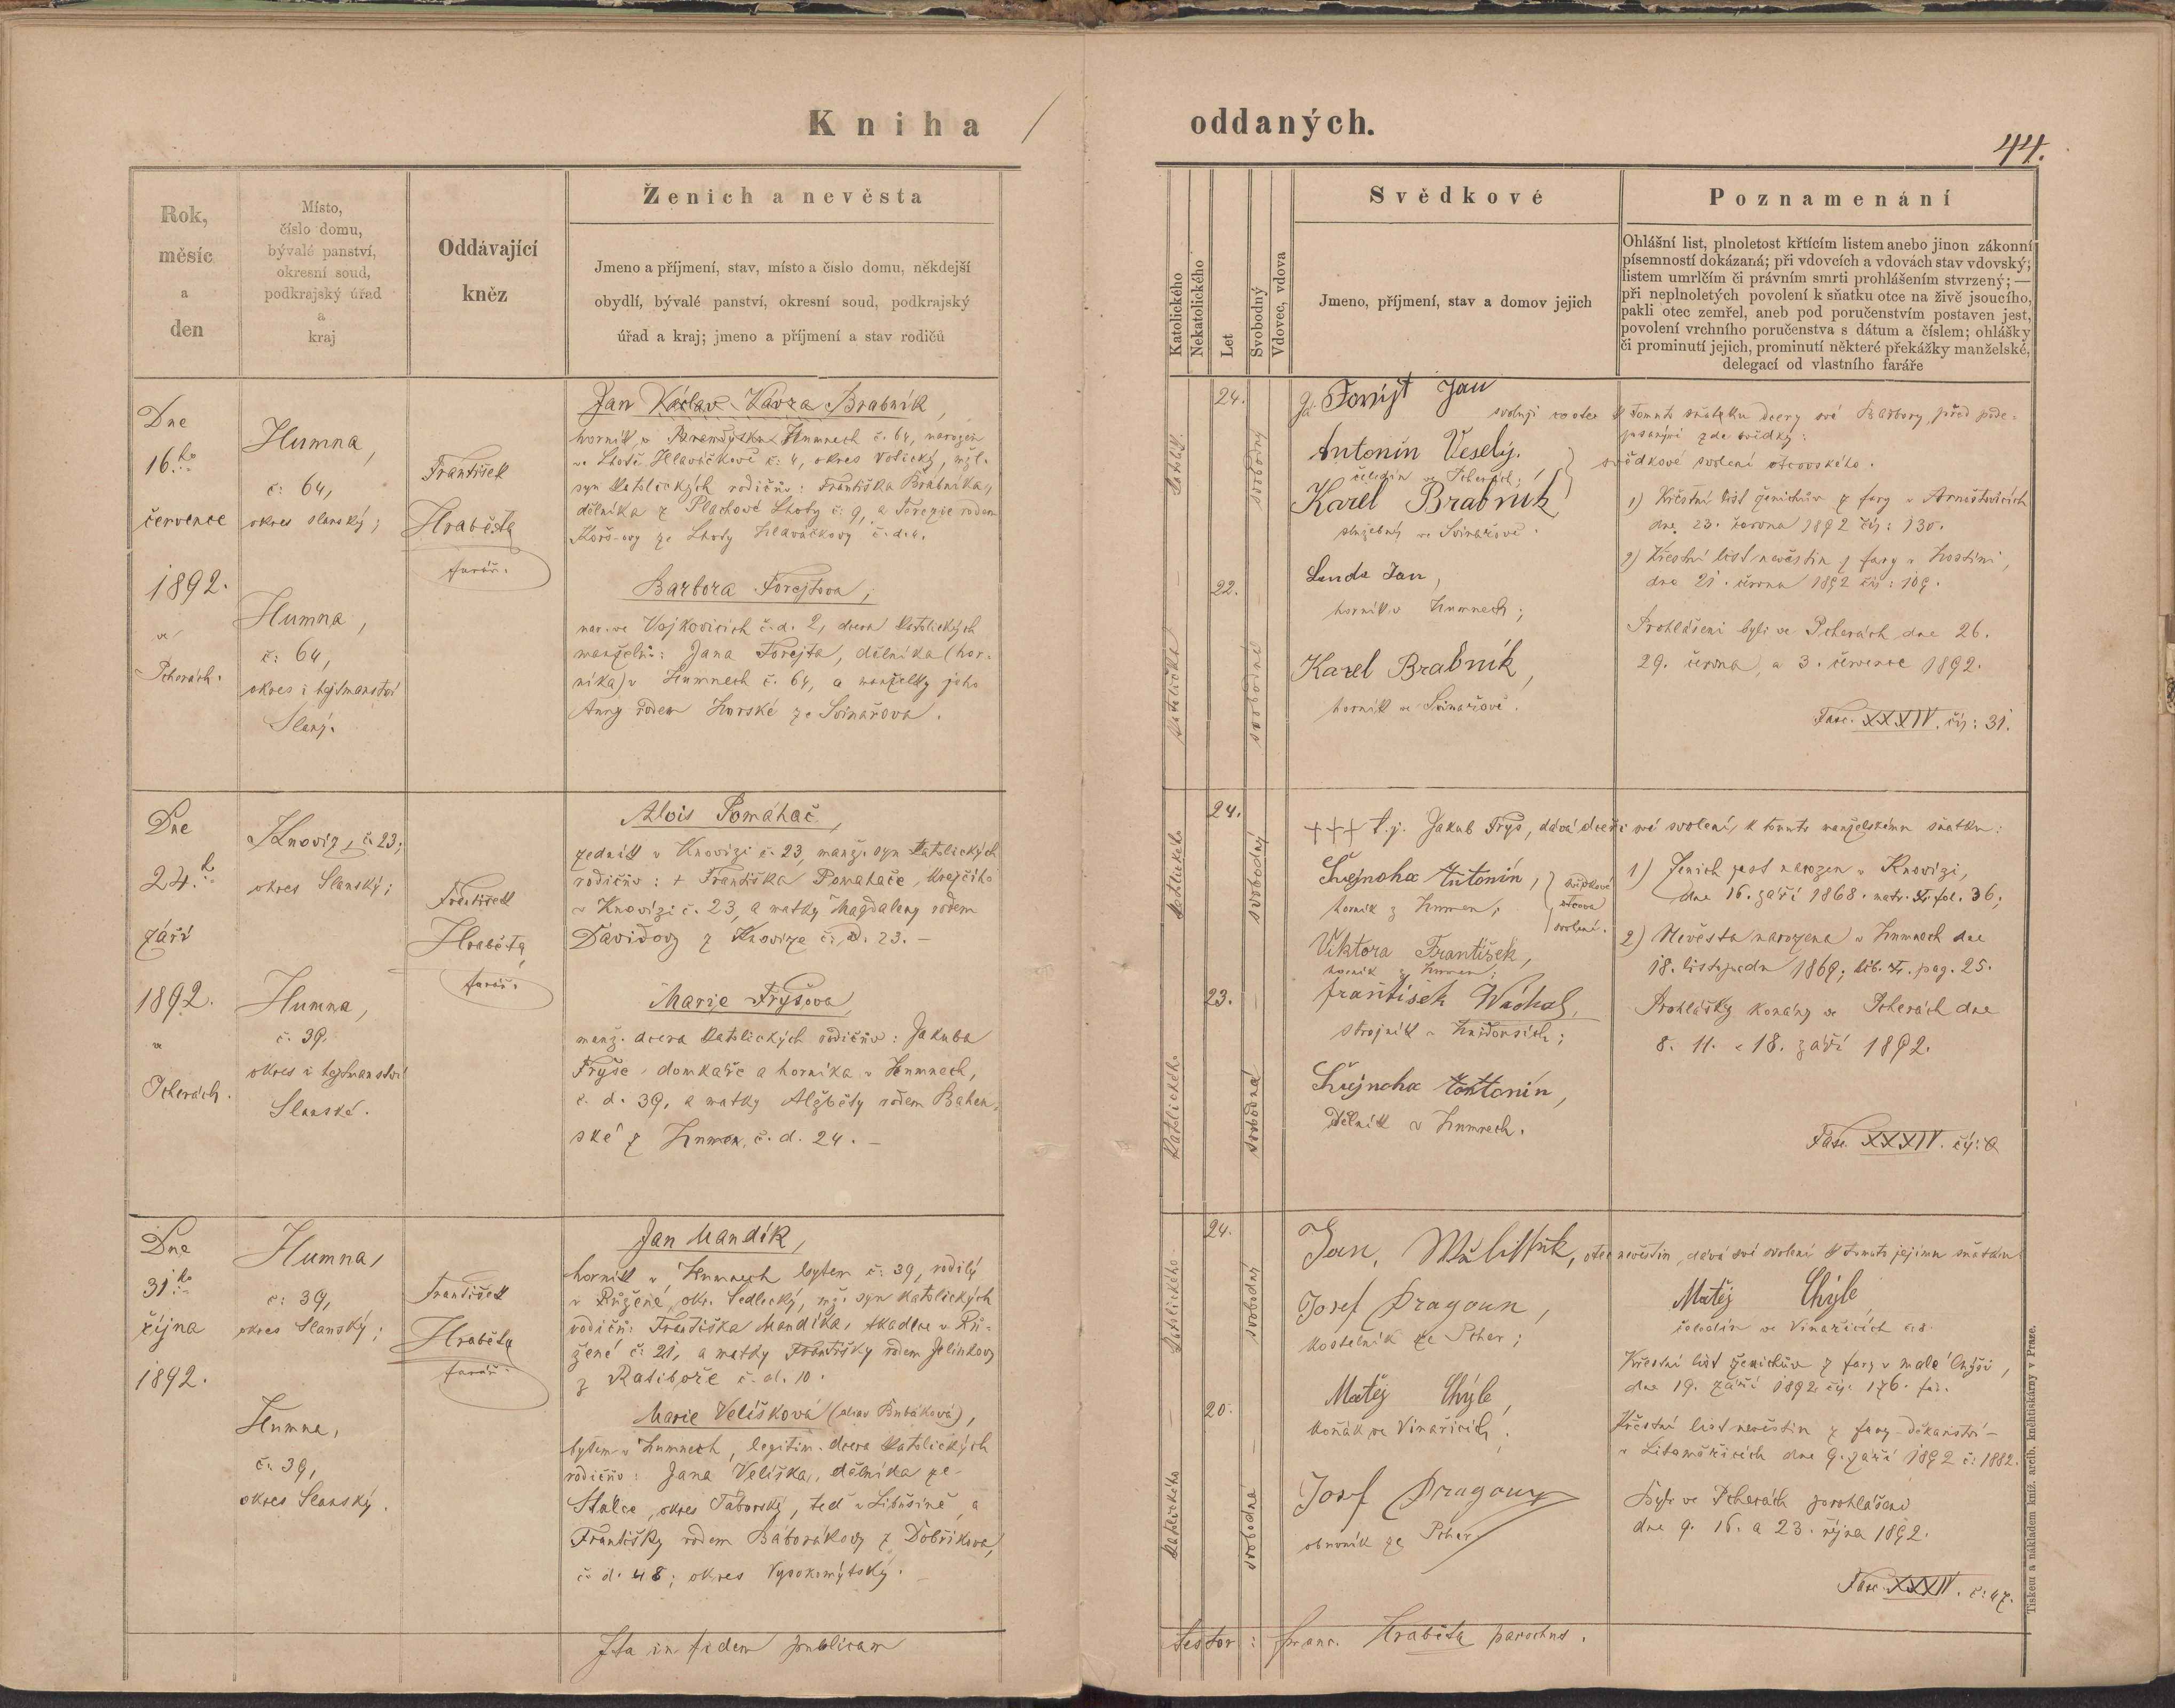 Kniha
oddaných.
44.
Rok,
měsíc
a
den
Místo,
číslo domu,
bývalé panství,
okresní soud,
podkrajský úřad
a
kraj
Oddávající
kněz
Ženich a nevěsta
Jmeno a příjmení, stav, místo a čislo domu, někdejší
obydlí, bývalé panství, okresní soud, podkrajský
úřad a kraj; jmeno a příjmení a stav rodičů
Katolického
Nekatolického
Let
Svobodný
Vdovec, vdova
Svědkové
Jmeno, příjmení, stav a domov jejich
Poznamenání
Ohlášní list, plnoletost křtícím listem anebo jinou zákonní
písemností dokázaná; při vdovcích a vdovách stav vdovský;
listem umrlčím či právním smrti prohlášením stvrzený; —
při neplnoletých povolení k sňatku otce na živě jsoucího,
pakli otec zemřel, aneb pod poručenstvím postaven jest,
povolení vrchního poručenstva s dátum a číslem; ohlášky
či prominutí jejich, prominutí některé překážky manželské,
delegací od vlastního faráře
Dne
16.ho
července
1892.
ve
Pcherách.
Humna,
č: 64,
okres slanský;
Humna,
č: 64,
okres i hejtmanství
Slaný.
František
Hraběta
farář.
Jan Brabník,
horník v Humnech č. 64, narozen
ve Lhotě Hlaváčkově č: 4, okres Votický, mžl.
syn katolických rodičův: Františka Brabníka,
dělníka z Plachové Lhoty č: 9, a Terezie rodem
ze Lhoty Hlaváčkovy č. d. 4.
Barbora Forejtova,
nar. ve Vojkovicích č. d. 2, dcera katolických
manželů: Jana Forejta, dělníka (hor-
níka) v Humnech č. 64, a manželky jeho
Anny rodem Horské ze Svinařova.
katolík.
24.
svobodný
katolička
22.
svobodná
Já Forrijt Jan
svoluji co otec k tomuto sňatku dcery své Barbory, před pode-
psanými zde svědky:
Antonín Veselý.
čeledín ve Pcherách;
svědkové svolení otcovského.
Karel Brabník
služebný ve Svinařově.
Lenda Jan,
horník v Humnech;
Karel Brabník,
horník ve Svinařově.
1) Křestní list ženichův z fary v Arnoštovicích
dne 23. června 1892 čís: 130.
2) Křestní list nevěstin z fary v Hostíni,
dne 21. června 1892 čís: 109.
Prohlášeni byli ve Pcherách dne 26.
29. června, a 3. července 1892.
Fasc. XXXIV. čís: 31.
Dne
24.ho
září
1892.
ve
Pcherách.
Knovíz, č. 23;
okres Slanský;
Humna,
č. 39.
okres i hejtmanství
Slanské.
František
Hraběta,
farář.
Alois Pomahač,
zedník v Knovízi č. 23, manž. syn katolických
rodičův: + Františka Pomahače, krejčího
v Knovízi č. 23, a matky Magdaleny rodem
Davidovy z Knovíze č. d. 23. —
Marie Fryšova,
manž. dcera katolických rodičův: Jakuba
Fryše, domkaře a horníka v Humnech,
č. d. 39, a matky Alžběty rodem Bahen-
ské z Humen, č. d. 24. —
katolického
24.
svobodný
katolického
23.
svobodná
+++ t. j. Jakub Fryš, dává dceři své svolení, k tomuto manželskému sňatku:
Švejnoha Antonín,
horník z Humen;
svědkové
otcova
svolení.
Viktora František,
horník z Humen;
František Wachal,
strojník v;
Švejnoha Antonín,
dělník v Humnech.
1) Ženich jest narozen v Knovízi,
dne 16. září 1868. matr. fol. 36;
2) Nevěsta narozena v Humnech dne
18. listopadu 1869; lib. pag. 25.
Prohlášky konány ve Pcherách dne
8. 11. a 18. září 1892.
Fasc. XXXIV. čís:
Dne
31.ho
října
1892.
Humna,
č: 39,
okres Slanský;
Humna,
č. 39,
okres Slanský.
František
Hraběta
farář.
Jan Mandík,
horník v Humnech bytem č: 39, rodilý
v Růžené, okr. Sedlecký, mž. syn katolických
rodičů: Františka Mandíka, tkadlce v Rů-
žené č: 21, a matky Františky rodem Jelínkovy
z Ratibořе č. d. 10.
Marie Velíšková (dříve Bubáková),
bytem v Humnech, legitim. dcera katolických
rodičův: Jana Velíška, dělníka ze
Stálce, okres Táborský, teď v Libušíně, a
Františky rodem Báborákovy z Dobříkova,
č. d. 48; okres Vysokomýtský.
katolického
24.
svobodný
katolického
20.
svobodná
Jan, otec nevěstin, dává své svolení k tomuto jejímu sňatku
Josef Dragoun,
kostelník ze Pcher;
Matěj Chýle,
ve Vinařicích.
Josef Dragoun
obuvník ze Pcher.
Matěj Chýle
čeledín ve Vinařicích č. 8.
Křestní list ženichův z fary v malé Chýši,
dne 19. září 1892 čís. 176. far.
Křestní list nevěstin z fary-děkanství-
v Litoměřicích dne 9. září 1892 č: 1882.
Byli ve Pcherách prohlášeni
dne 9. 16. a 23. října 1892.
Fasc. XXXIV. č: 47.
Ita in fidem publicam
testor: Franc. Hraběta parochus.
Tiskem a nákladem kníž. arcib. knihtiskárny v Praze.